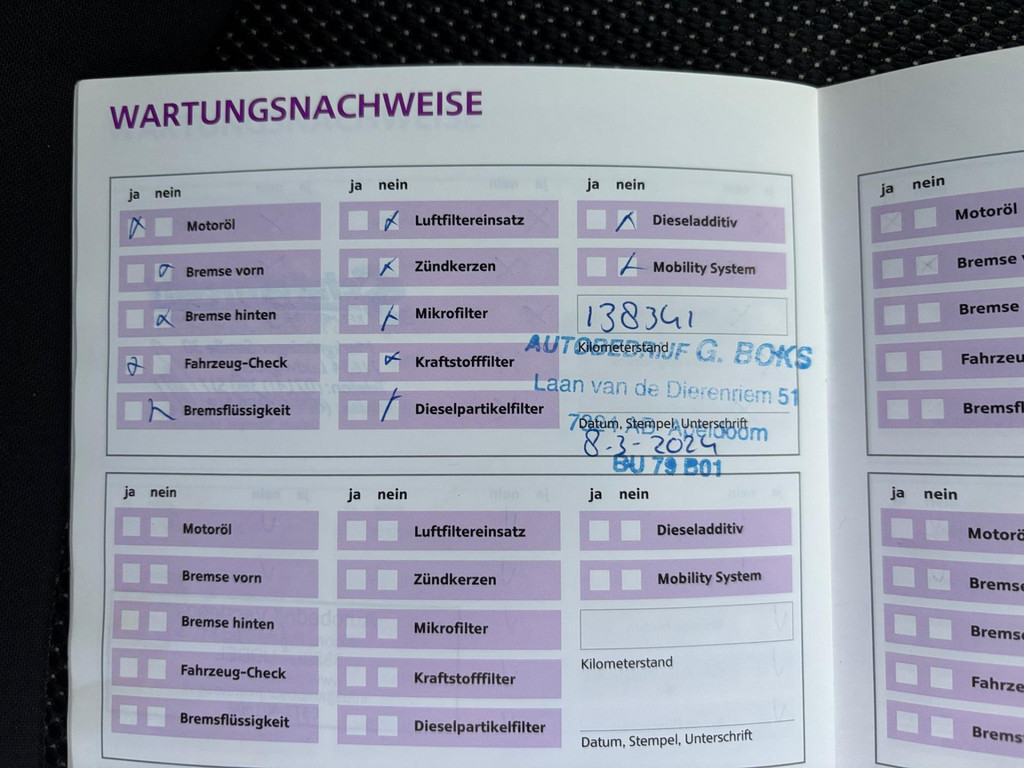 WARTUNGSNACHWEISE
ja nein
Motoröl
Bremse vorn
Bremse hinten
Fahrzeug-Check
Bremsflüssigkeit
ja nein
Luftfiltereinsatz
Zündkerzen
Mikrofilter
Kraftstofffilter
Dieselpartikelfilter
ja nein
Dieseladditiv
Mobility System
138341
Kilometerstand
AUTOBEDRIJF G. BOKS
Laan van de Dierenriem 51
Apeldoorn
Datum, Stempel, Unterschrift
8-3-2024
BU 79 B01
ja nein
Motoröl
Bremse vorn
Bremse hinten
Fahrzeug-Check
Bremsflüssigkeit
ja nein
Luftfiltereinsatz
Zündkerzen
Mikrofilter
Kraftstofffilter
Dieselpartikelfilter
ja nein
Dieseladditiv
Mobility System
Kilometerstand
Datum, Stempel, Unterschrift
ja nein
Motoröl
Bremse v
Bremse
Fahrzeu
Bremsfl
ja nein
Motorö
Bremse
Bremse
Fahrze
Brems